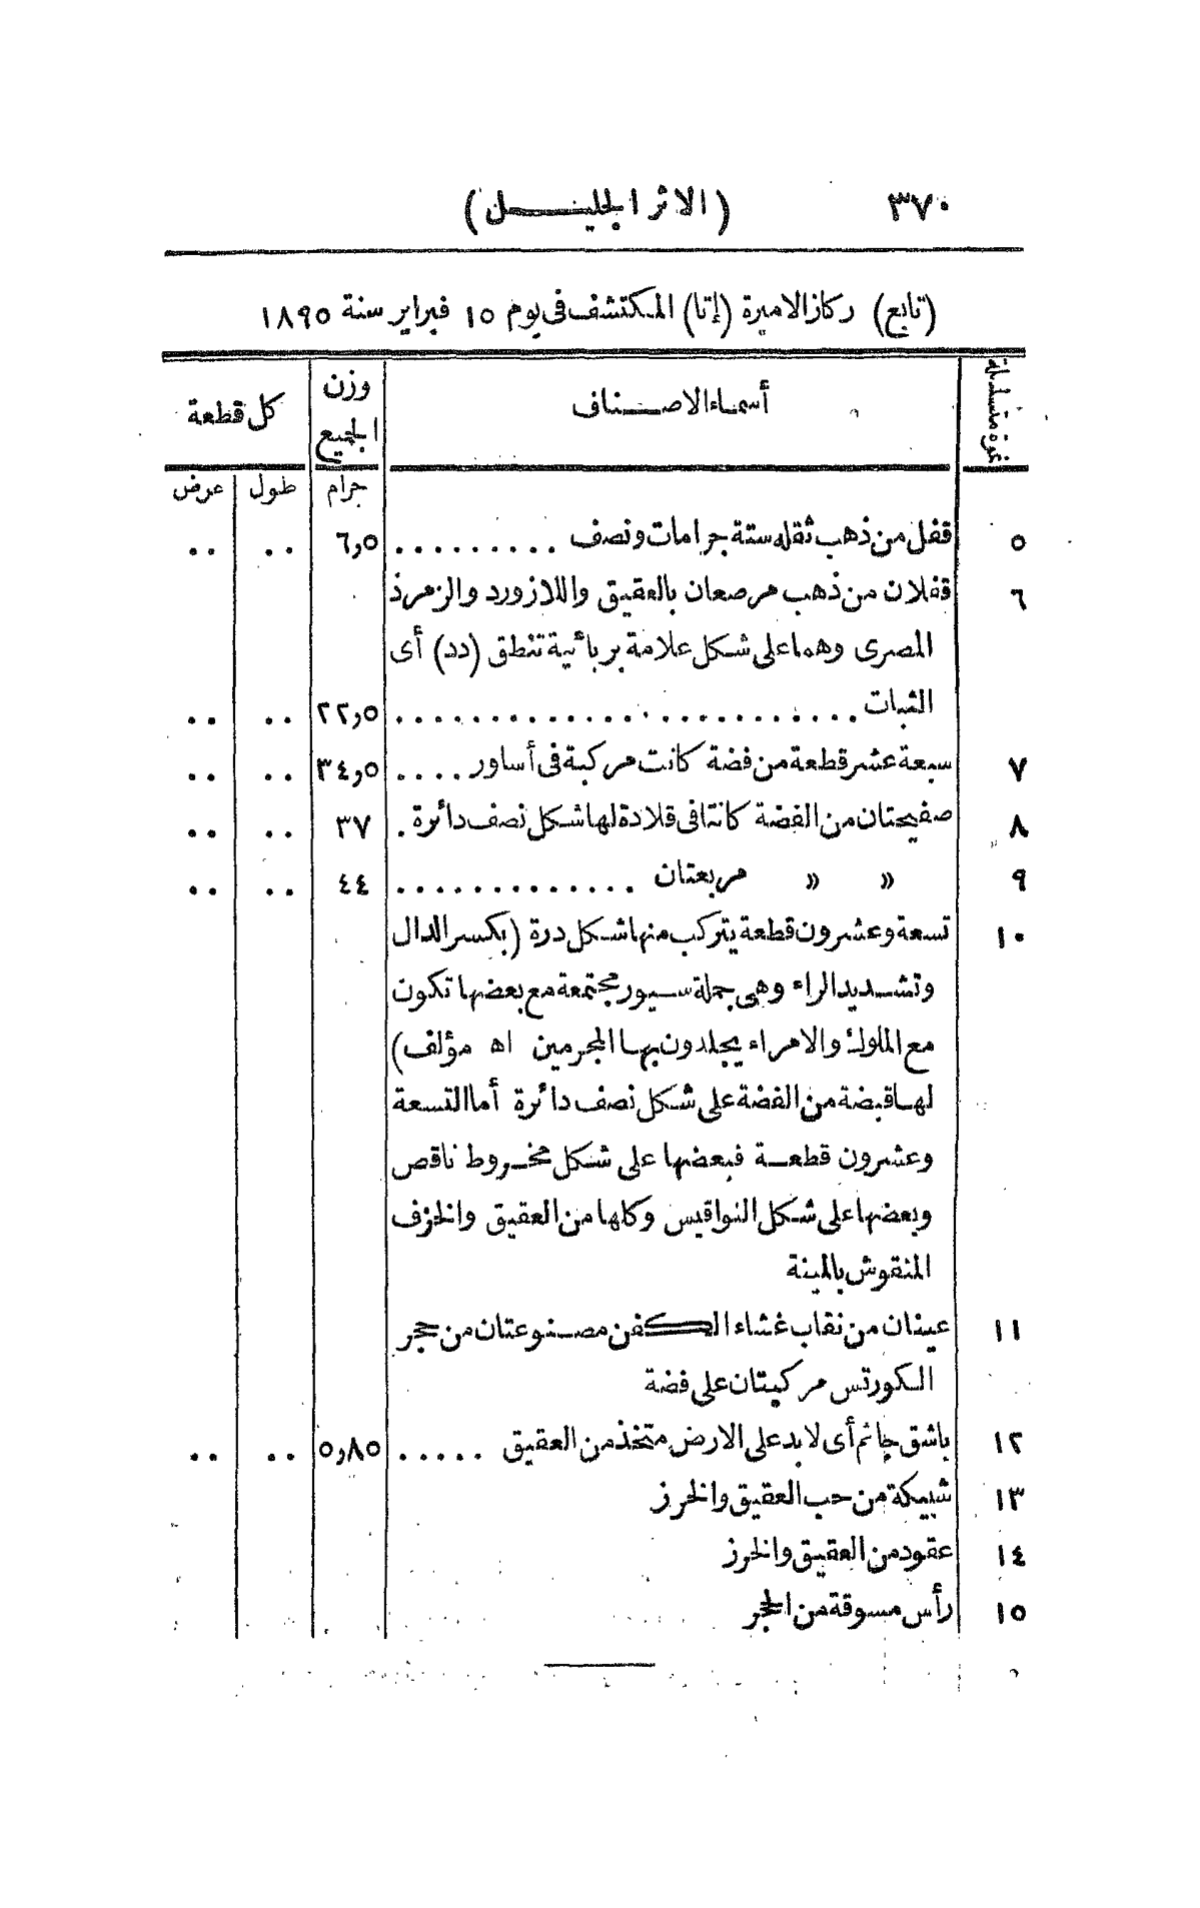 ٣٧٠ (الاثر الجليـــــل)
(تابع) ركاز الاميرة (إتا) المكتشف فى يوم ١٥ فبراير سنة ١٨٩٥
نمرة متسلسلة أسماء الاصــناف وزن الجميع كل قطعة
جرام طول عرض
٥ قفل من ذهب ثقله ستة جرامات ونصف ......... ٦٫٥ .. ..
٦ قفلان من ذهب مرصعان بالعقيق واللازورد والزمرذ
المصرى وهما على شكل علامة بربائية تنطق (دد) أى
الثبات ......................... ٢٢٫٥ .. ..
٧ سبعة عشر قطعة من فضة كانت مركبة فى أساور .... ٣٤٫٥ .. ..
٨ صفيحتان من الفضة كانتا فى قلادة لها شكل نصف دائرة . ٣٧ .. ..
٩ » » مربعتان ............. ٤٤ .. ..
١٠ تسعة وعشرون قطعة يتركب منها شكل درة (بكسر الدال
وتشديد الراء وهى جملة سيور مجتمعة مع بعضها تكون
مع الملوك والامراء يجلدون بها المجرمين اه مؤلف)
لها قبضة من الفضة على شكل نصف دائرة أما التسعة
وعشرون قطعــة فبعضها على شكل مخروط ناقص
وبعضها على شكل النواقيس وكلها من العقيق والخزف
المنقوش بالمينة
١١ عينان من نقاب غشاء الكفن مصنوعتان من حجر
الكورتس مركبتان على فضة
١٢ باشق جاثم أى لابد على الارض متخذ من العقيق ..... ٥٫٨٥ .. ..
١٣ شبيكة من حب العقيق والخرز
١٤ عقود من العقيق والخرز
١٥ رأس مسوقة من الحجر